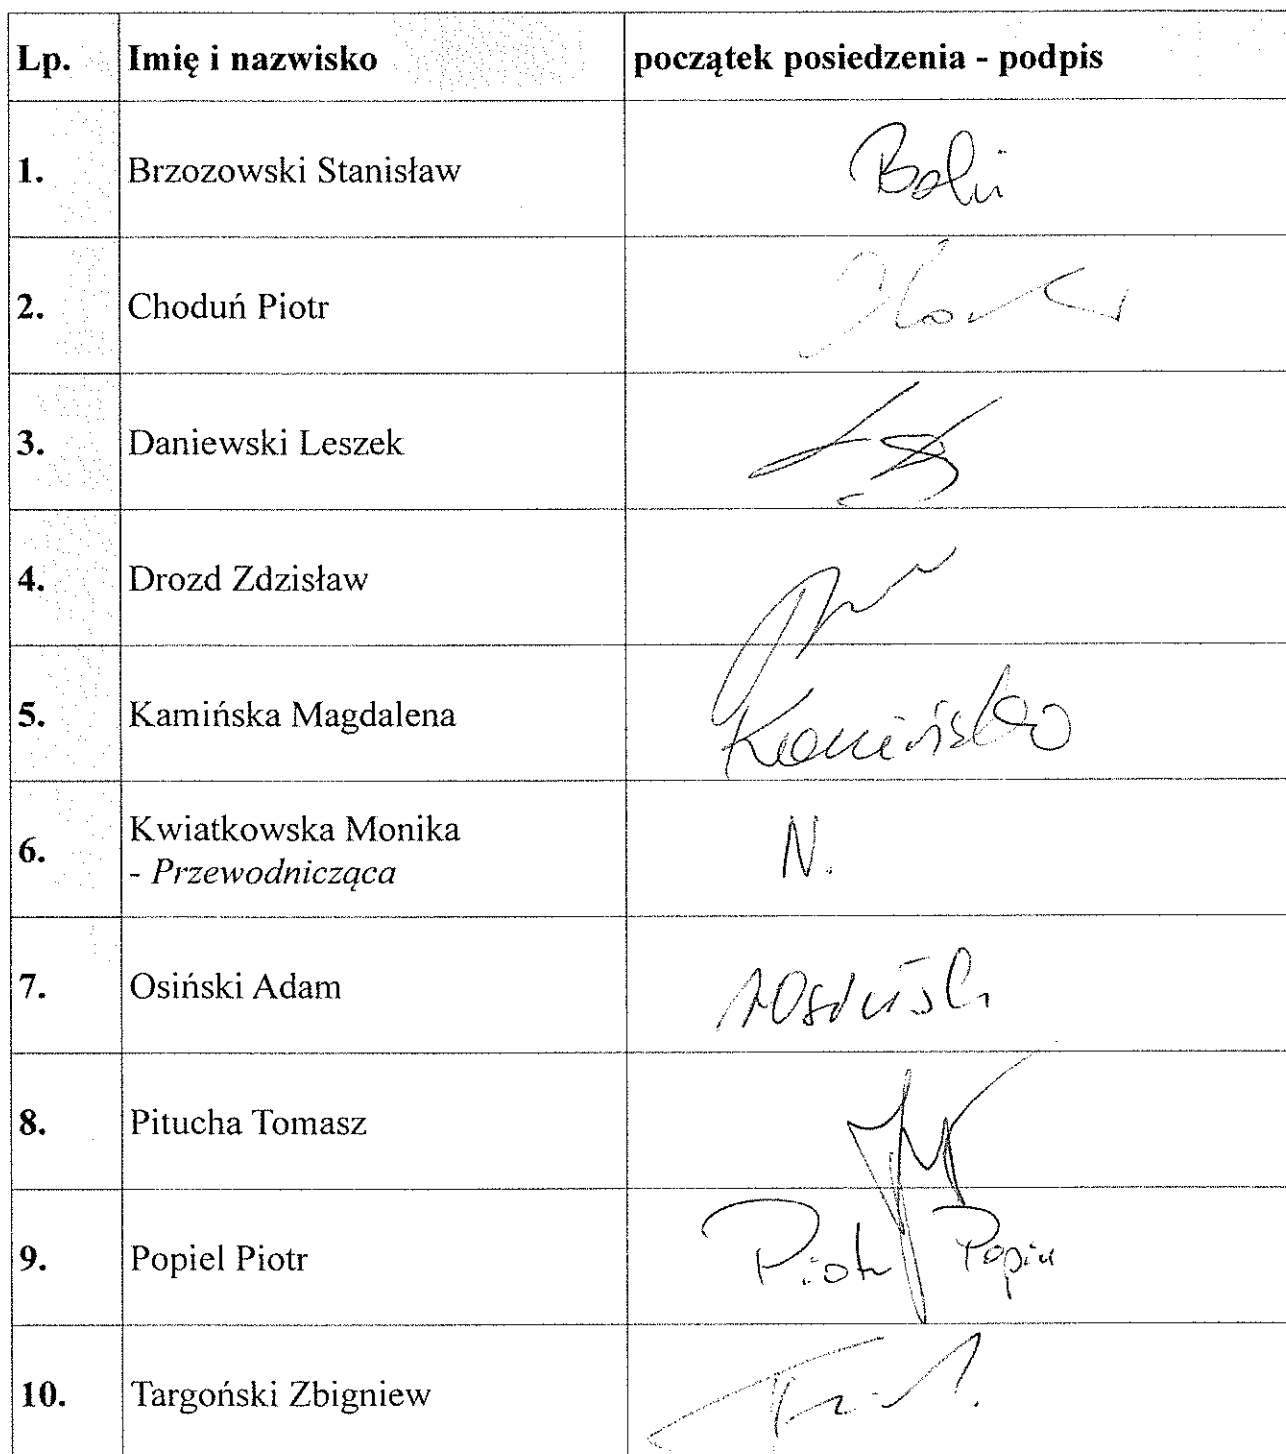 Lp. Imię i nazwisko początek posiedzenia - podpis
1. Brzozowski Stanisław
2. Choduń Piotr
3. Daniewski Leszek
4. Drozd Zdzisław
5. Kamińska Magdalena Kamińska
6. Kwiatkowska Monika N.
- Przewodnicząca
7. Osiński Adam
8. Pitucha Tomasz
9. Popiel Piotr Piotr Popiel
10. Targoński Zbigniew